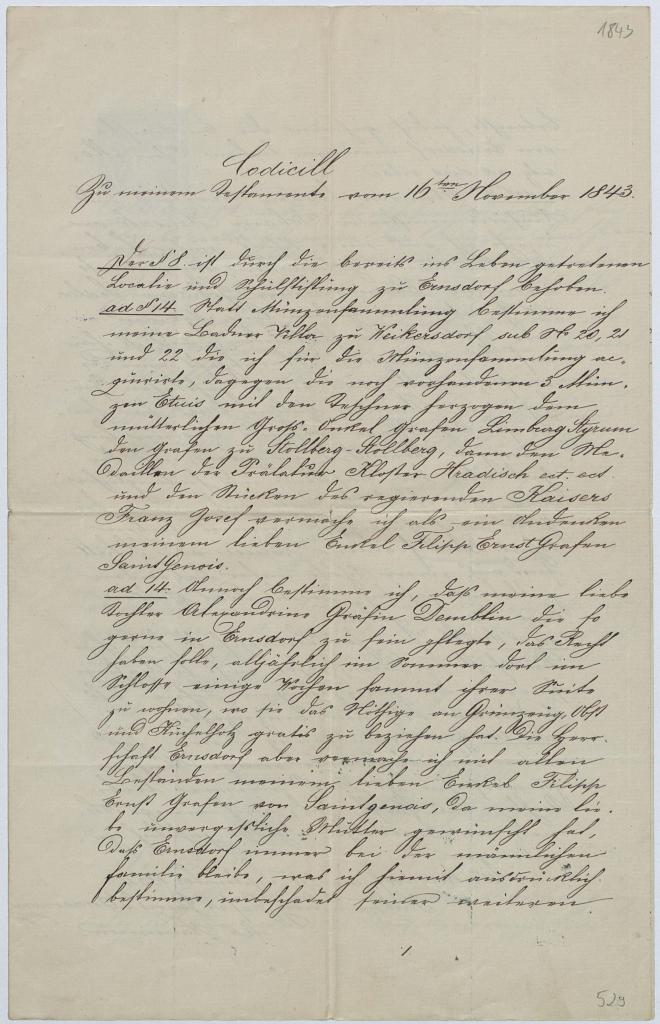 1843
Codicill
Zu meinem Testamente vom 16ten November 1843.
Der § 8. ist durch die bereits ins Leben getretenen
Localie und Schulstiftung zu Ernsdorf behoben.
ad § 14. Statt Münzensammlung bestimme ich
meine Badner Villa zu Weikersdorf sub N 20, 21
und 22 die ich für die Münzensammlung ac-
quirirte, dagegen die noch vorhandenen 3 Mün-
zen Etuis mit den Teschner Herzogen dem
mütterlichen Gross-Onkel Grafen Limburg Styrum
den Grafen zu Stollberg-Stollberg, dann den Me-
daillen der Prälatur Kloster Hradisch ect. ect.
und den Stücken des regierenden Kaisers
Franz Josef vermache ich als ein Andenken
meinem lieben Enkel Filipp Ernst Grafen
Saint Genois.
ad 14. Annoch bestimme ich, daß meine liebe
Tochter Alexandrine Gräfin Demblin die so
gerne in Ernsdorf zu sein pflegte, das Recht
haben solle, alljährlich im Sommer dort im
Schlosse einige Wochen sammt ihrer Suite
zu wohnen, wo sie das Nöthige an Grünzeug, Obst
und Kuchelholz gratis zu beziehen hat. Die Herr-
schaft Ernsdorf aber vermache ich mit allen
Beständen meinem lieben Enkel Filipp
Ernst Grafen von Saintgenois, da meine lie-
be unvergessliche Mutter gewünscht hat,
daß Ernsdorf immer bei der männlichen
Familie bleibe, was ich hiemit ausdrücklich
bestimme, unbeschadet seiner weiteren
529